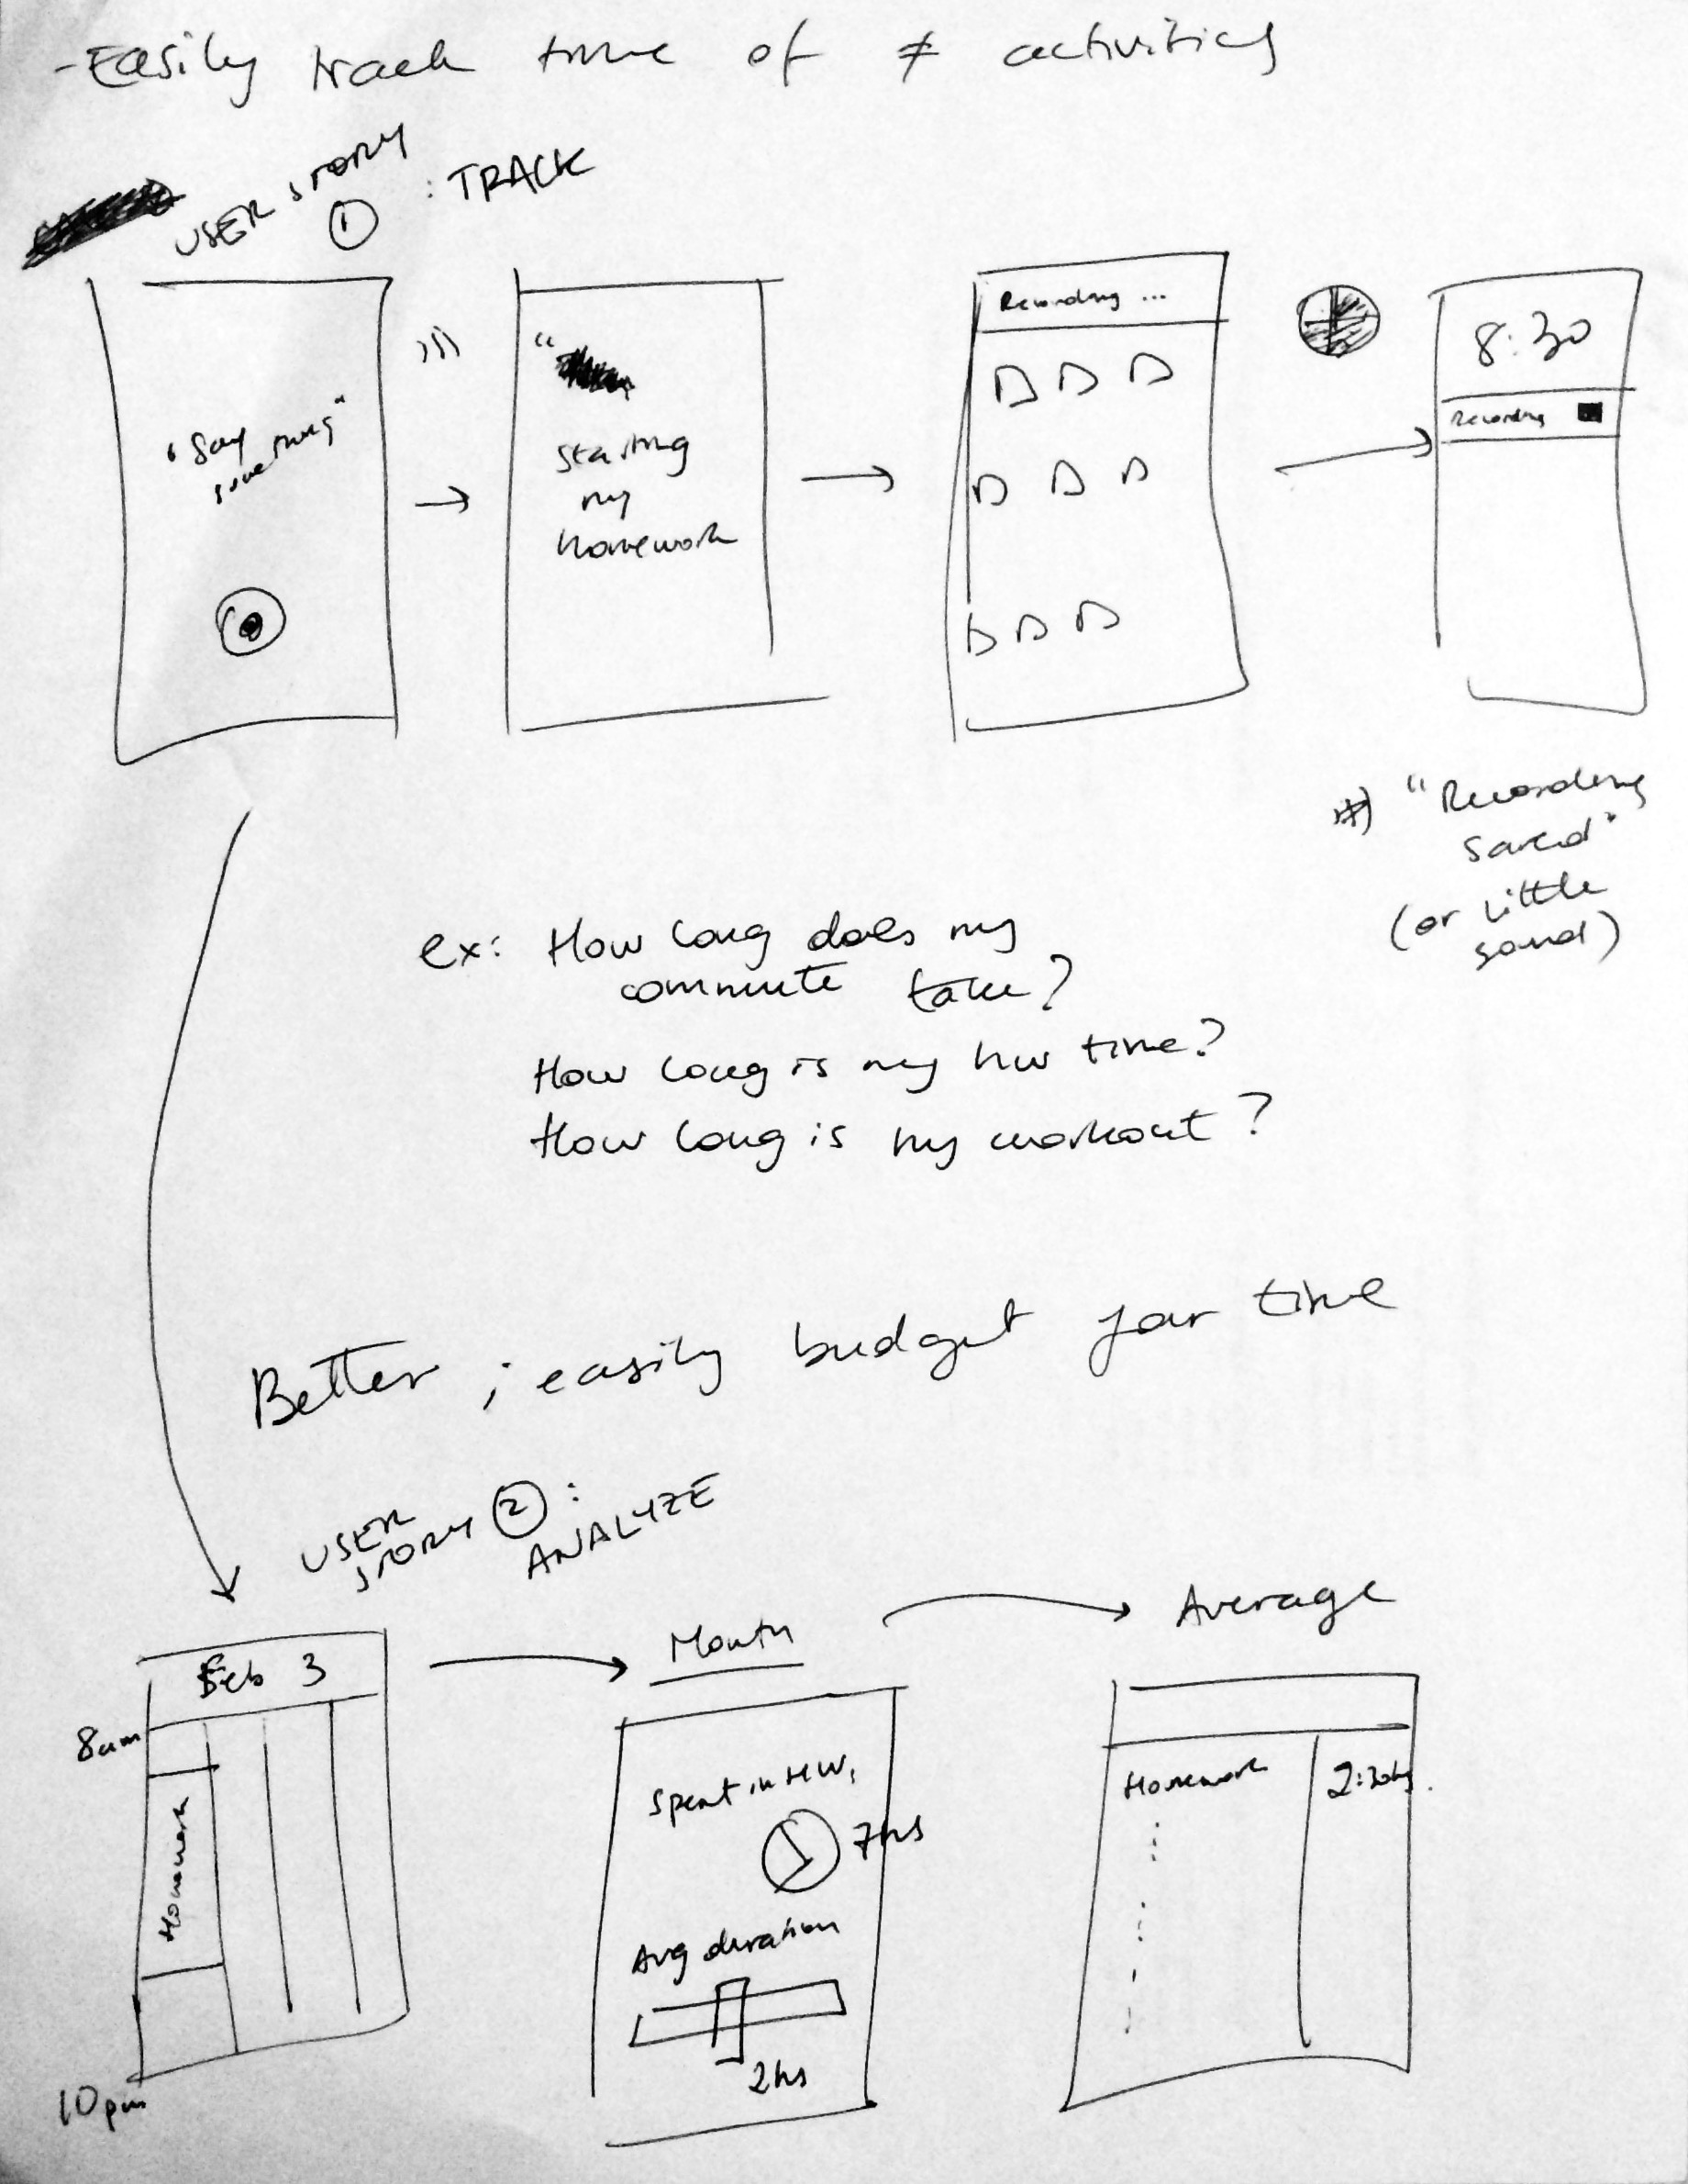 - Easily track time of ≠ activities
USER STORY
① : TRACK
"Say
something"
"
Starting
my
homework
Recording ...
8:30
Recording
"Recording
saved"
(or little
sound)
ex: How long does my
commute take?
How long is my hw time?
How long is my workout?
Better ; easily budget your time
USER
STORY ② :
ANALYZE
Feb 3
8am
Homework
10pm
Month
Spent in HW,
7hs
Avg duration
2hs
Average
Homework
2:30hs.